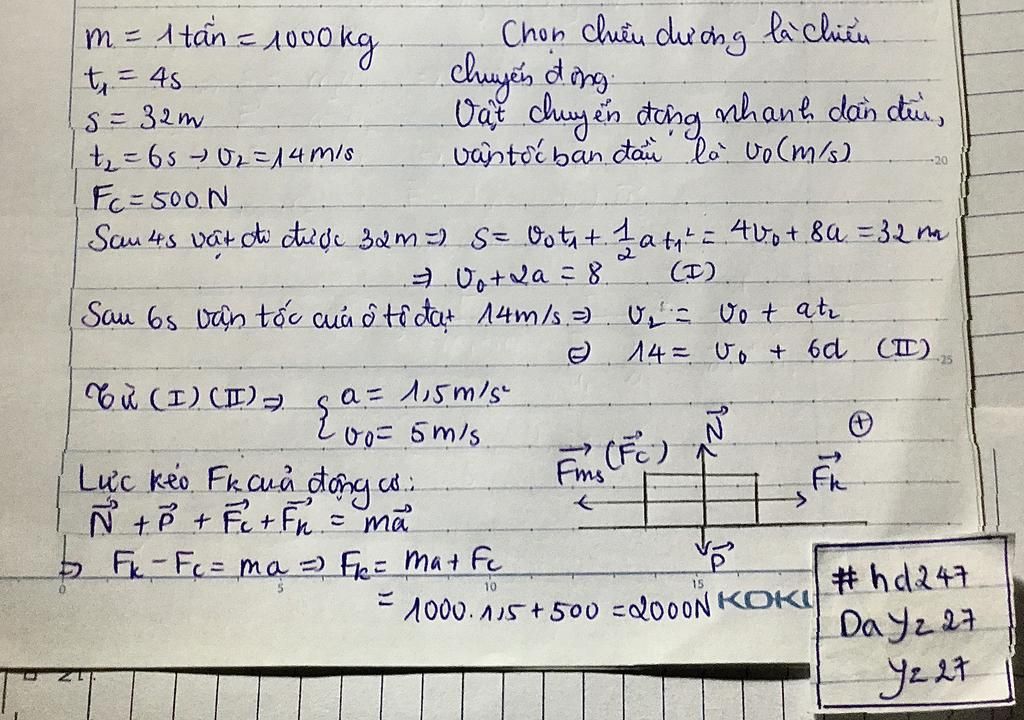 m = 1 tấn = 1000 kg
t₁ = 4s
s = 32m
t₂ = 6s → v₂ = 14 m/s
Fc = 500 N
Chọn chiều dương là chiều
chuyển động.
Vật chuyển động nhanh dần đều,
vận tốc ban đầu là v₀ (m/s)
20
Sau 4s vật đi được 32m ⇒ s = v₀t₁ + 1/2 at₁² = 4v₀ + 8a = 32 m
⇒ v₀ + 2a = 8 (I)
Sau 6s vận tốc của ô tô đạt 14 m/s ⇒ v₂ = v₀ + at₂
⇔ 14 = v₀ + 6a (II)
25
Từ (I) (II) ⇒ { a = 1,5 m/s²
v₀ = 5 m/s
Lực kéo Fk của động cơ:
N⃗ + P⃗ + F⃗c + F⃗k = ma⃗
⇒ Fk - Fc = ma ⇒ Fk = ma + Fc
= 1000.1,5 + 500 = 2000N
N⃗
+
F⃗ms (F⃗c)
F⃗k
P⃗
0 5 10 15
KOKU
#hd247
Dayz27
yz27